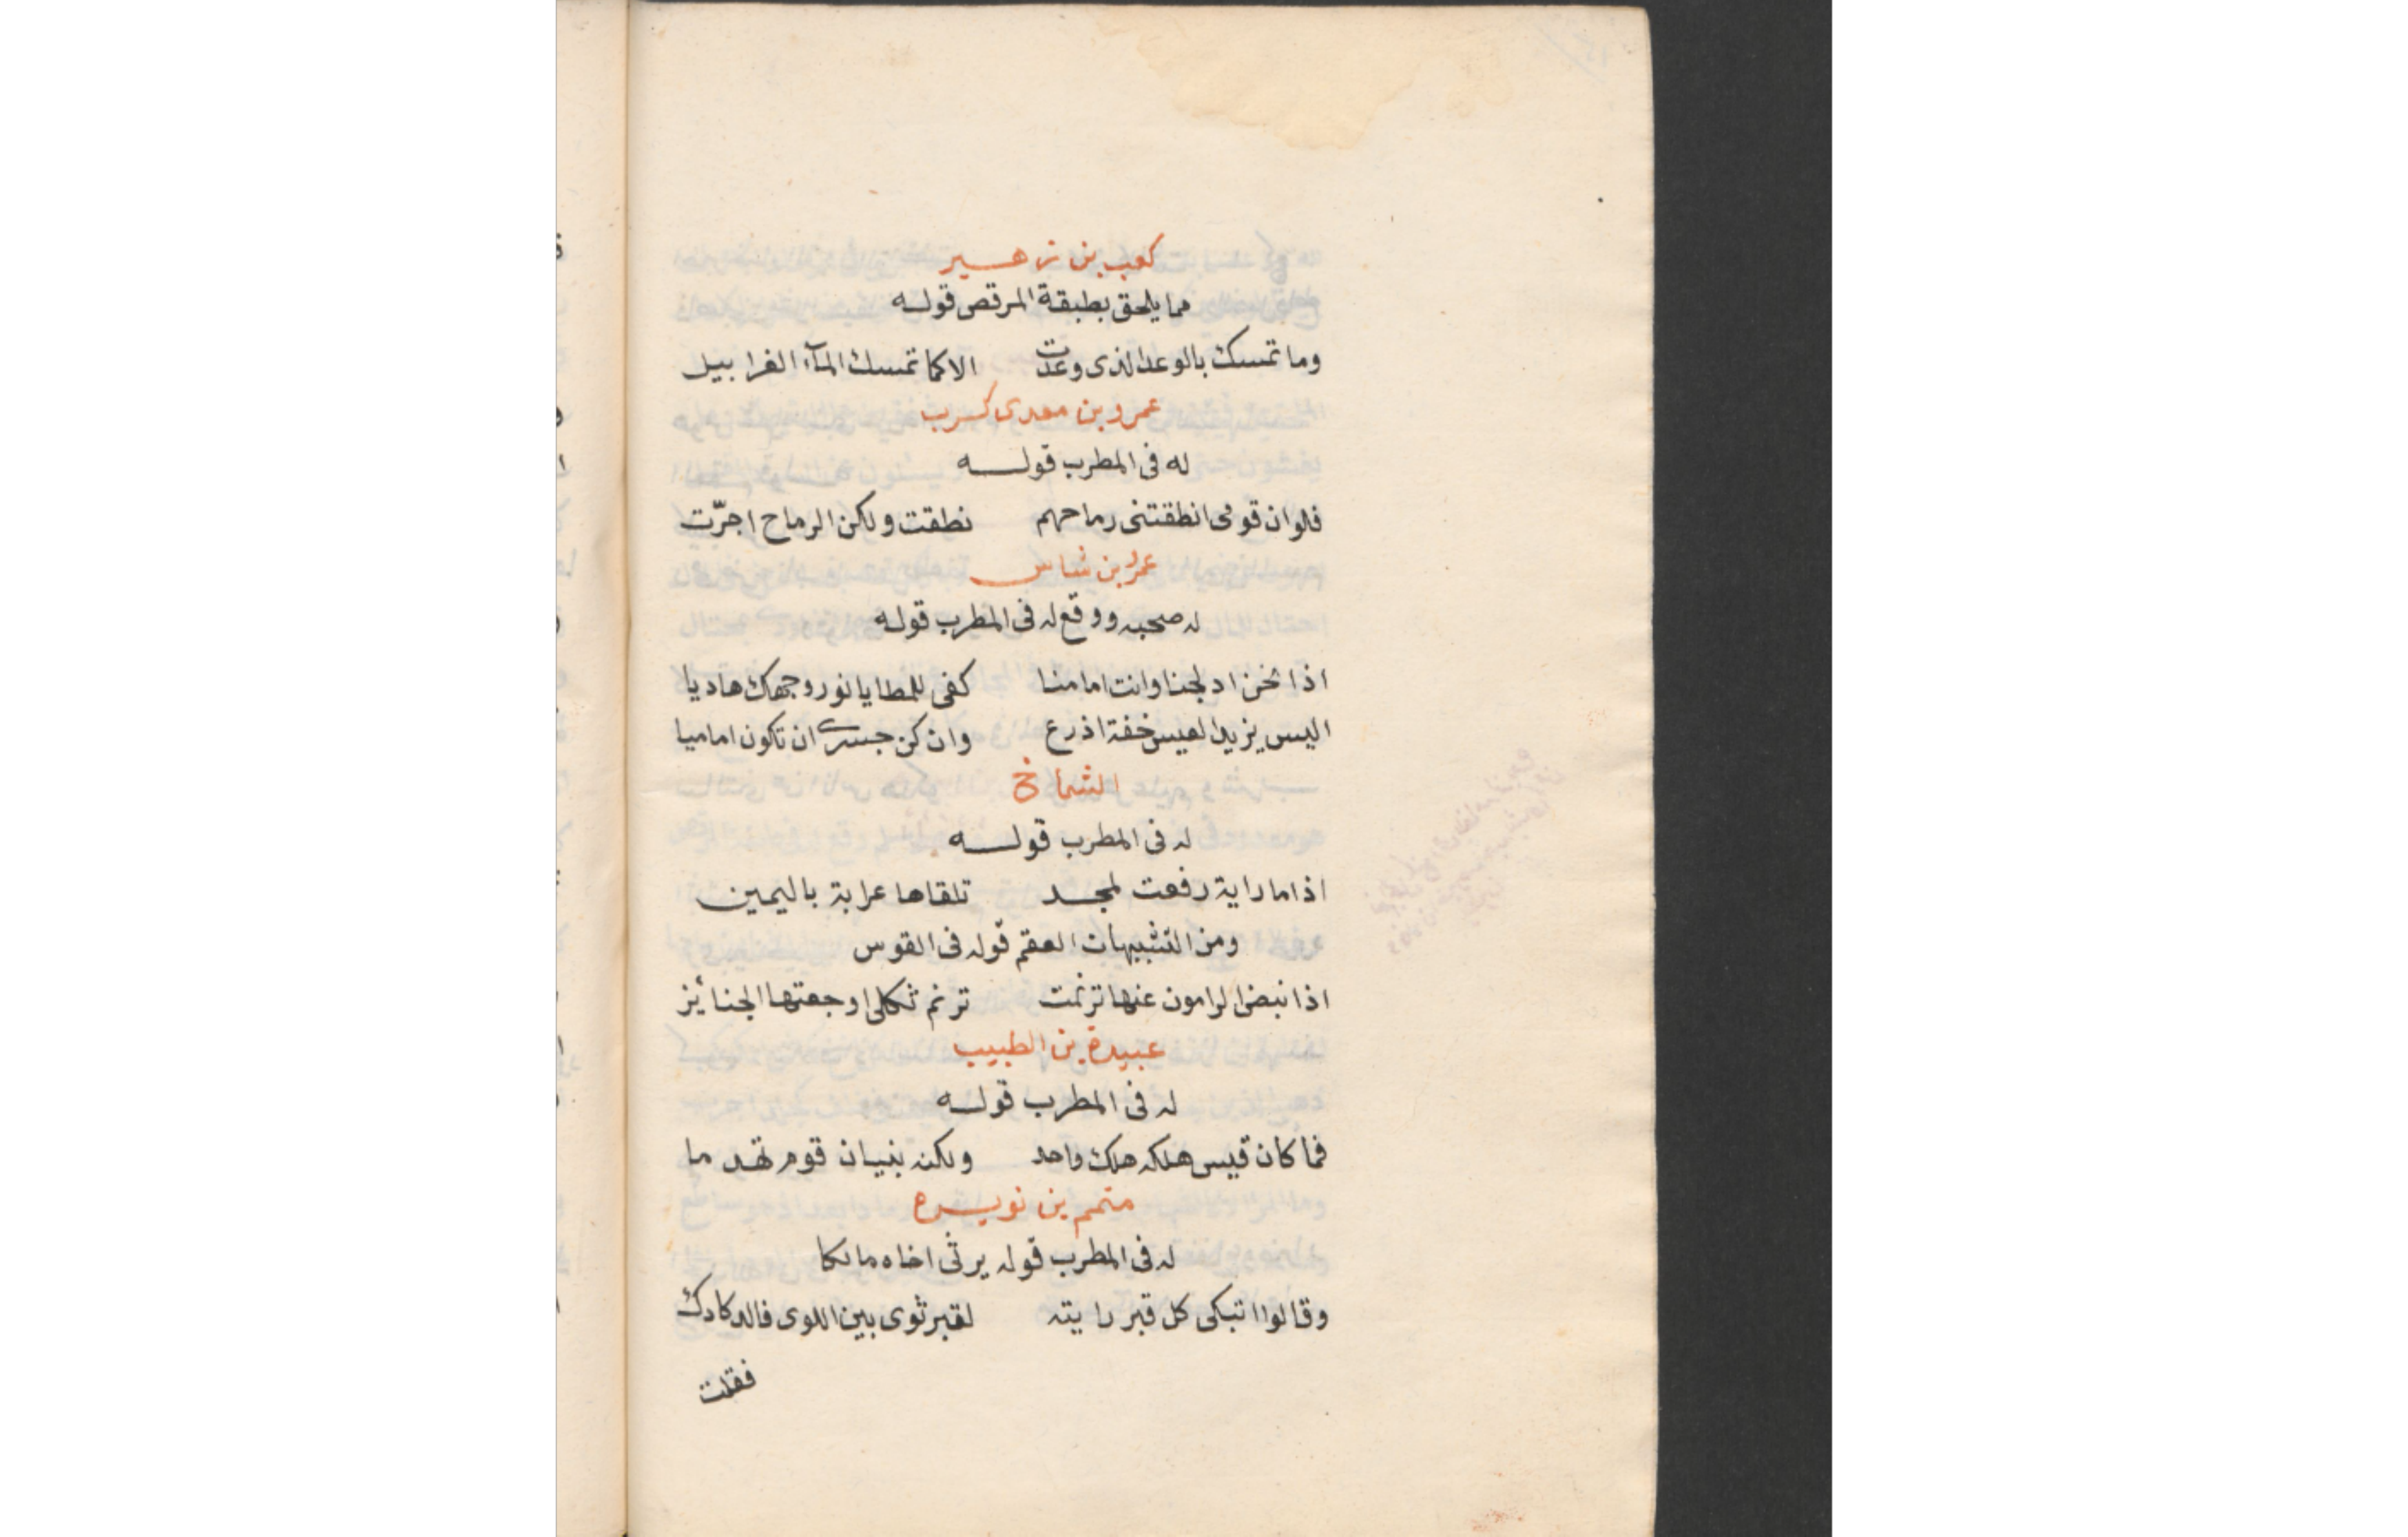 كعب بن زهير
مما يلحق بطبقة المرقص قوله
وما تمسك بالوعد الذى وعدت الا كما تمسك المآء الغرابيل
عمرو بن معدى كرب
له فى المطرب قوله
فلو ان قومى انطقتنى رماحهم نطقت ولكن الرماح اجرّت
عمرو بن شاس
له صحبه ووقع له فى المطرب قوله
اذا نحن ادلجنا وانت امامنا كفى للمطايا نور وجهك هاديا
اليس يزيد العيس خفة اذرع وان كن حسرى ان تكون اماميا
الشماخ
له فى المطرب قوله
اذا ما راية رفعت لمجد تلقاها عرابة باليمين
ومن التشبيهات العقم قوله فى القوس
اذا نبض الرامون عنها ترنمت ترنم ثكلى اوجعتها الجنائز
عبيدة بن الطبيب
له فى المطرب قوله
فما كان قيس هلكه هلك واحد ولكنه بنيان قوم تهدما
متمم بن نويره
له فى المطرب قوله يرثى اخاه مالكا
وقالوا اتبكى كل قبر رايته لقبر ثوى بين اللوى فالدكادك
فقلت